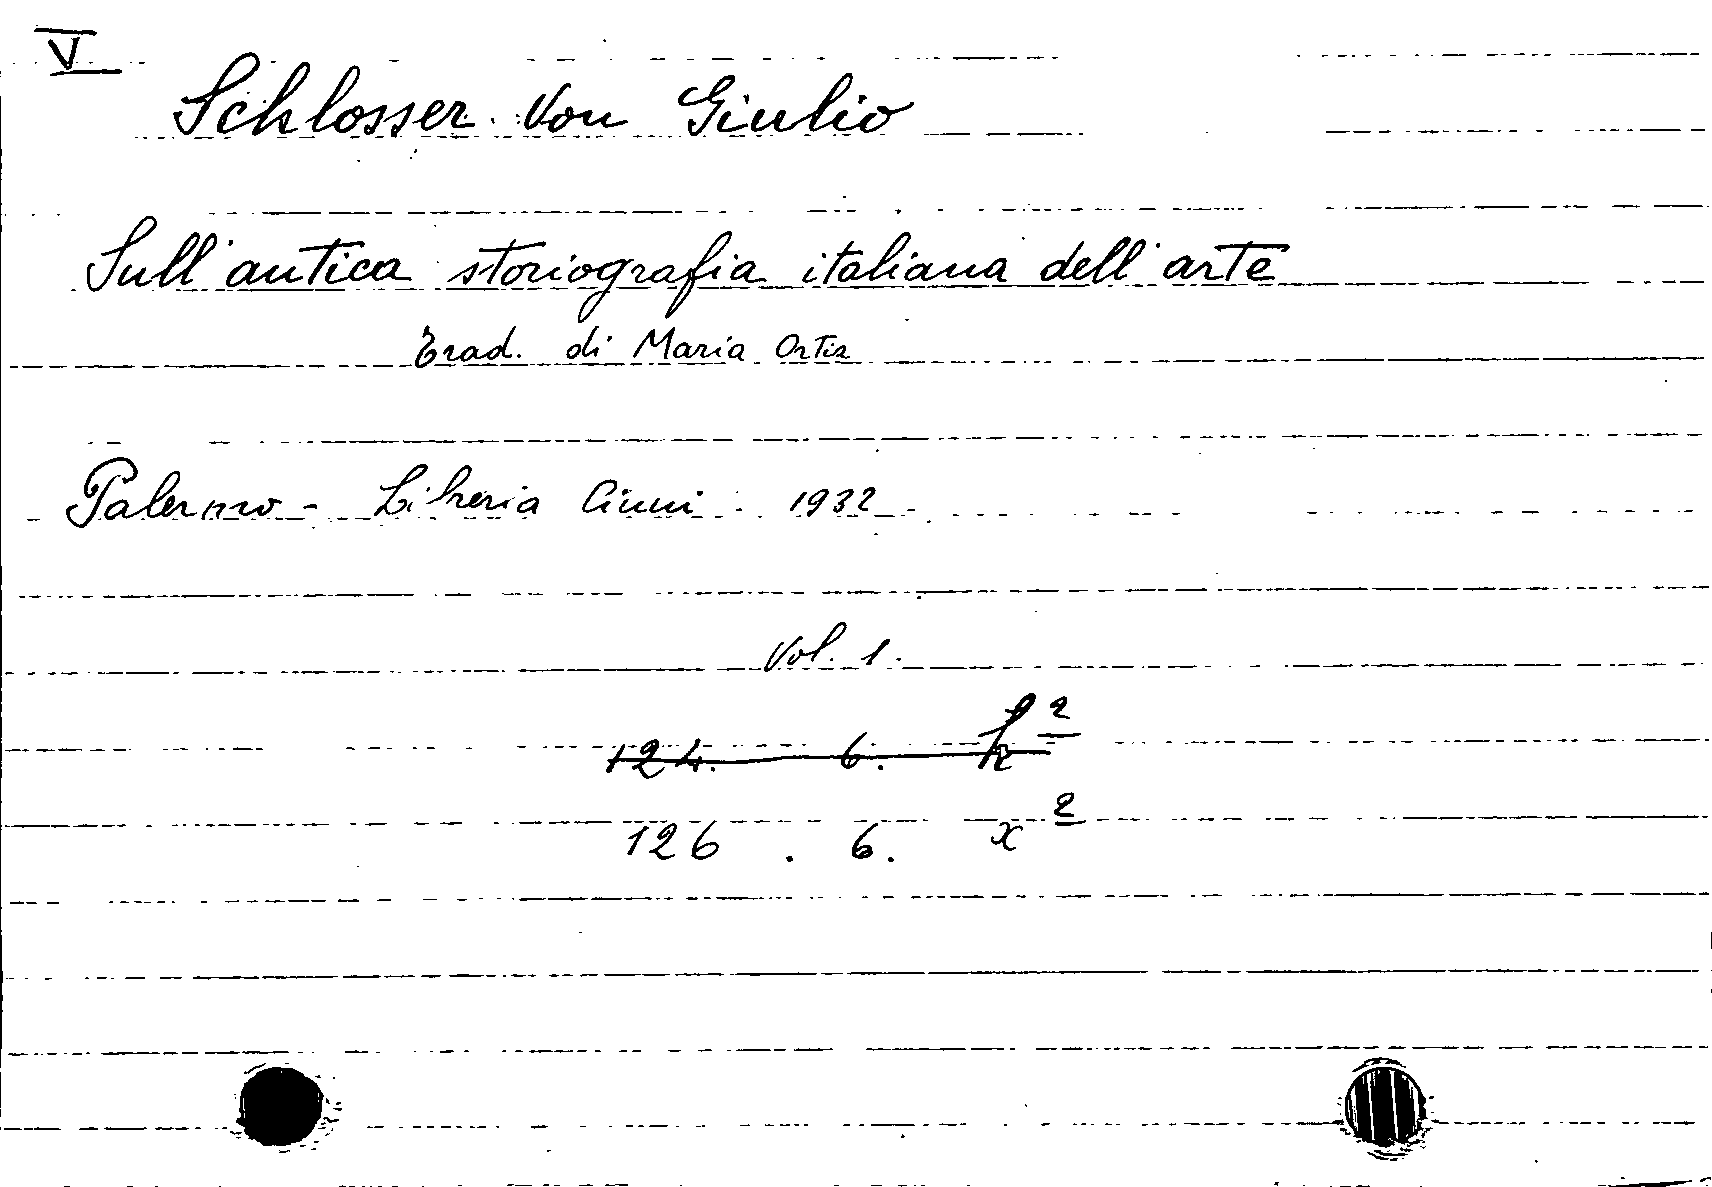 V
Schlosser Von Giulio
Sull'antica storiografia italiana dell'arte
Trad. di Maria Ortiz
Palermo - Libreria Ciuni - 1932 -
Vol. 1.
124. 6.
126 . 6. x 2